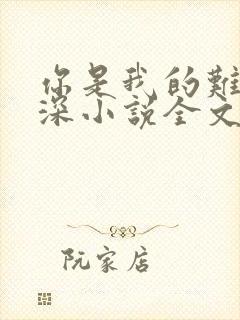 你是我的難
深小說全文
阮家店